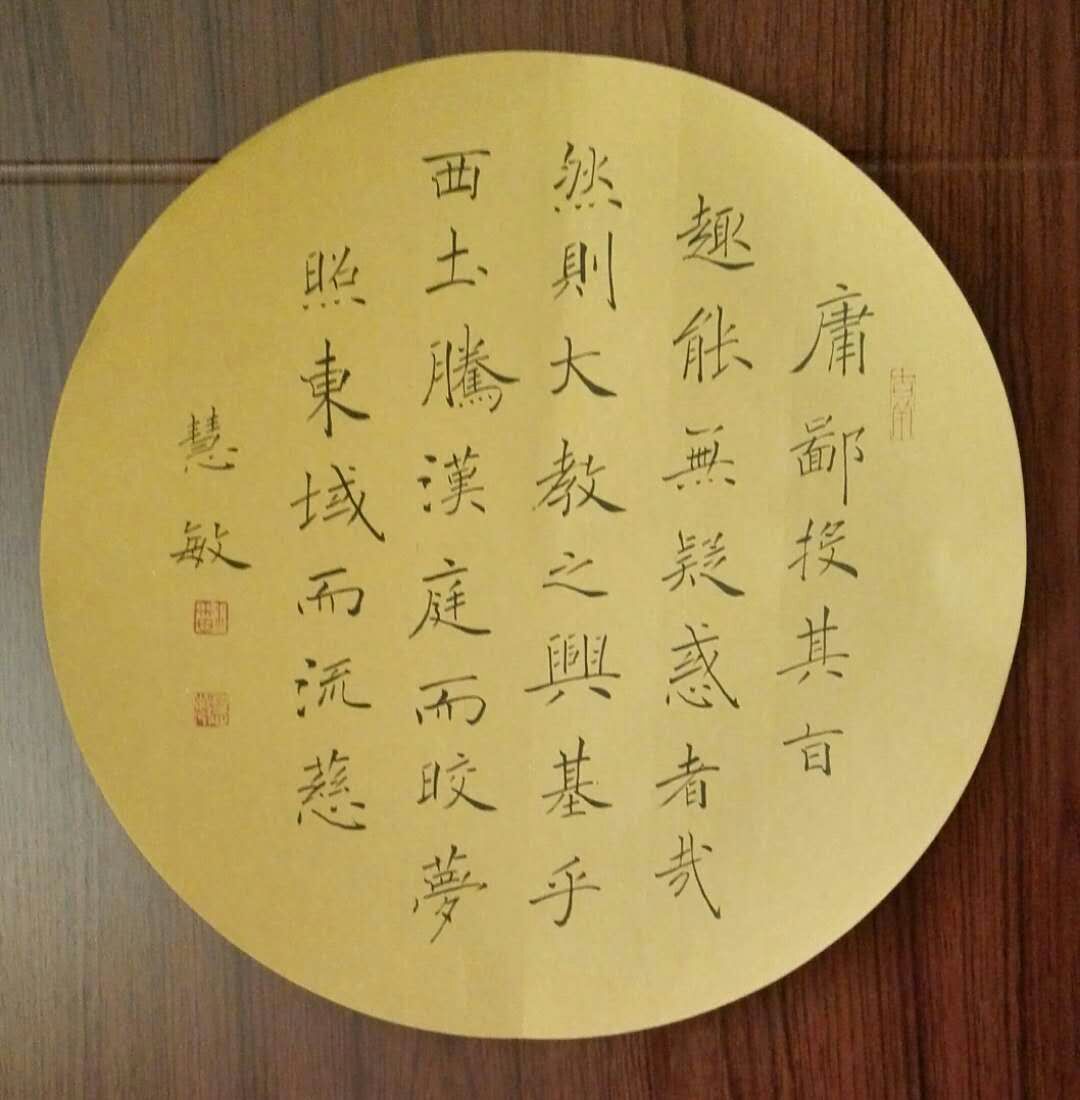 庸鄙投其旨
趣能無疑惑者哉
然則大教之興基乎
西土騰漢庭而皎夢
照東域而流慈
慧敏